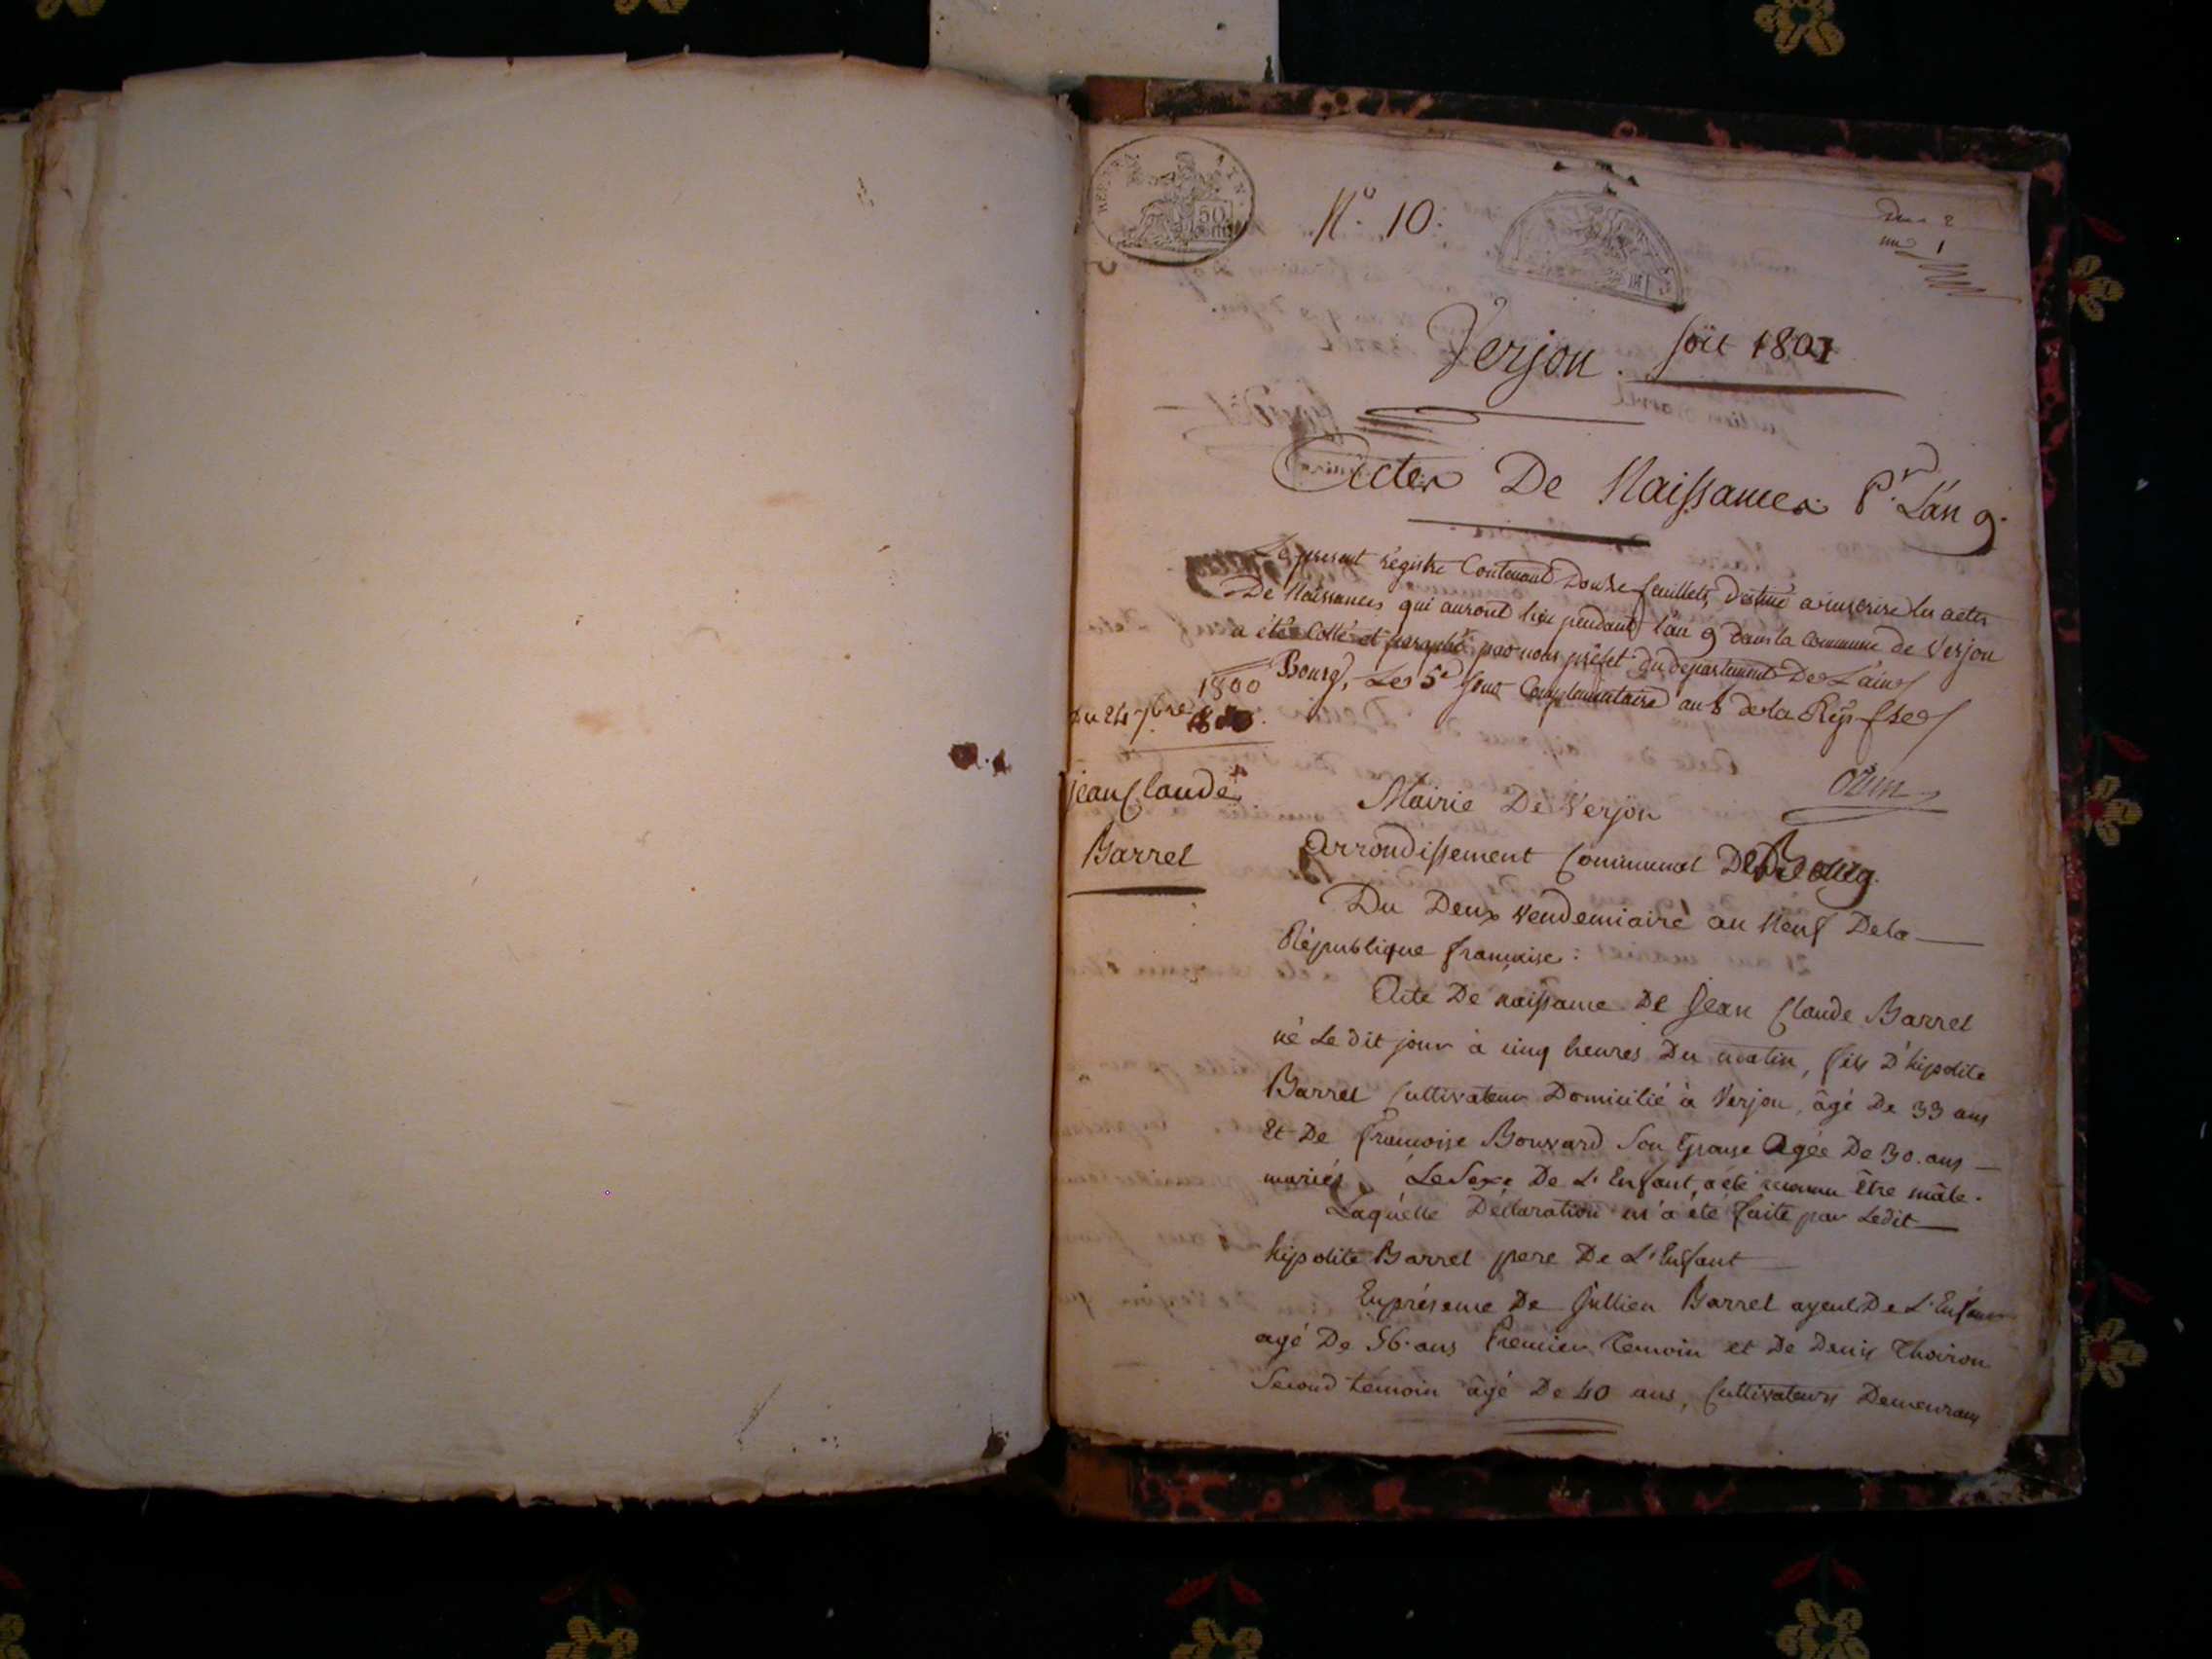 N.º 10.
Verjon . Soit 1801
Actes De Naissances P.r L'an 9.
Le present régistre Contenant Douze feuillets, destiné a inscrire les actes
De Naissances qui auront lieu pendant l'an 9 dans la Commune de Verjon
a été Cotté et paraphé par nous préfet du departement De L'ain
Bourg, Le 5e jour Complementaire an 8 de la Rep. fse
1800
Du 24 7bre
Jean Claude
Barrel
Mairie De Verjon
Arrondissement Communal De Bourg.
Du Deux Vendemiaire an Neuf De la
République francaise :
Acte De naissance De Jean Claude Barrel
né Le dit jour à cinq heures Du matin, fils D'hipolite
Barrel Cultivateur Domicilié à Verjon, âgé De 33 ans
Et De francoise Bouvard Son Epouse Agée De 30. ans
mariés, Le Sexe De L'Enfant, a été reconnu être mâle.
Laquelle Déclaration m'a été faite par Ledit
hipolite Barrel pere De L'Enfant
En présence De Jullien Barrel ayeul De L'Enfant
agé De 56. ans Premier Temoin et De Denis Thoiron
Second temoin âgé De 40 ans, Cultivateurs Demeurans